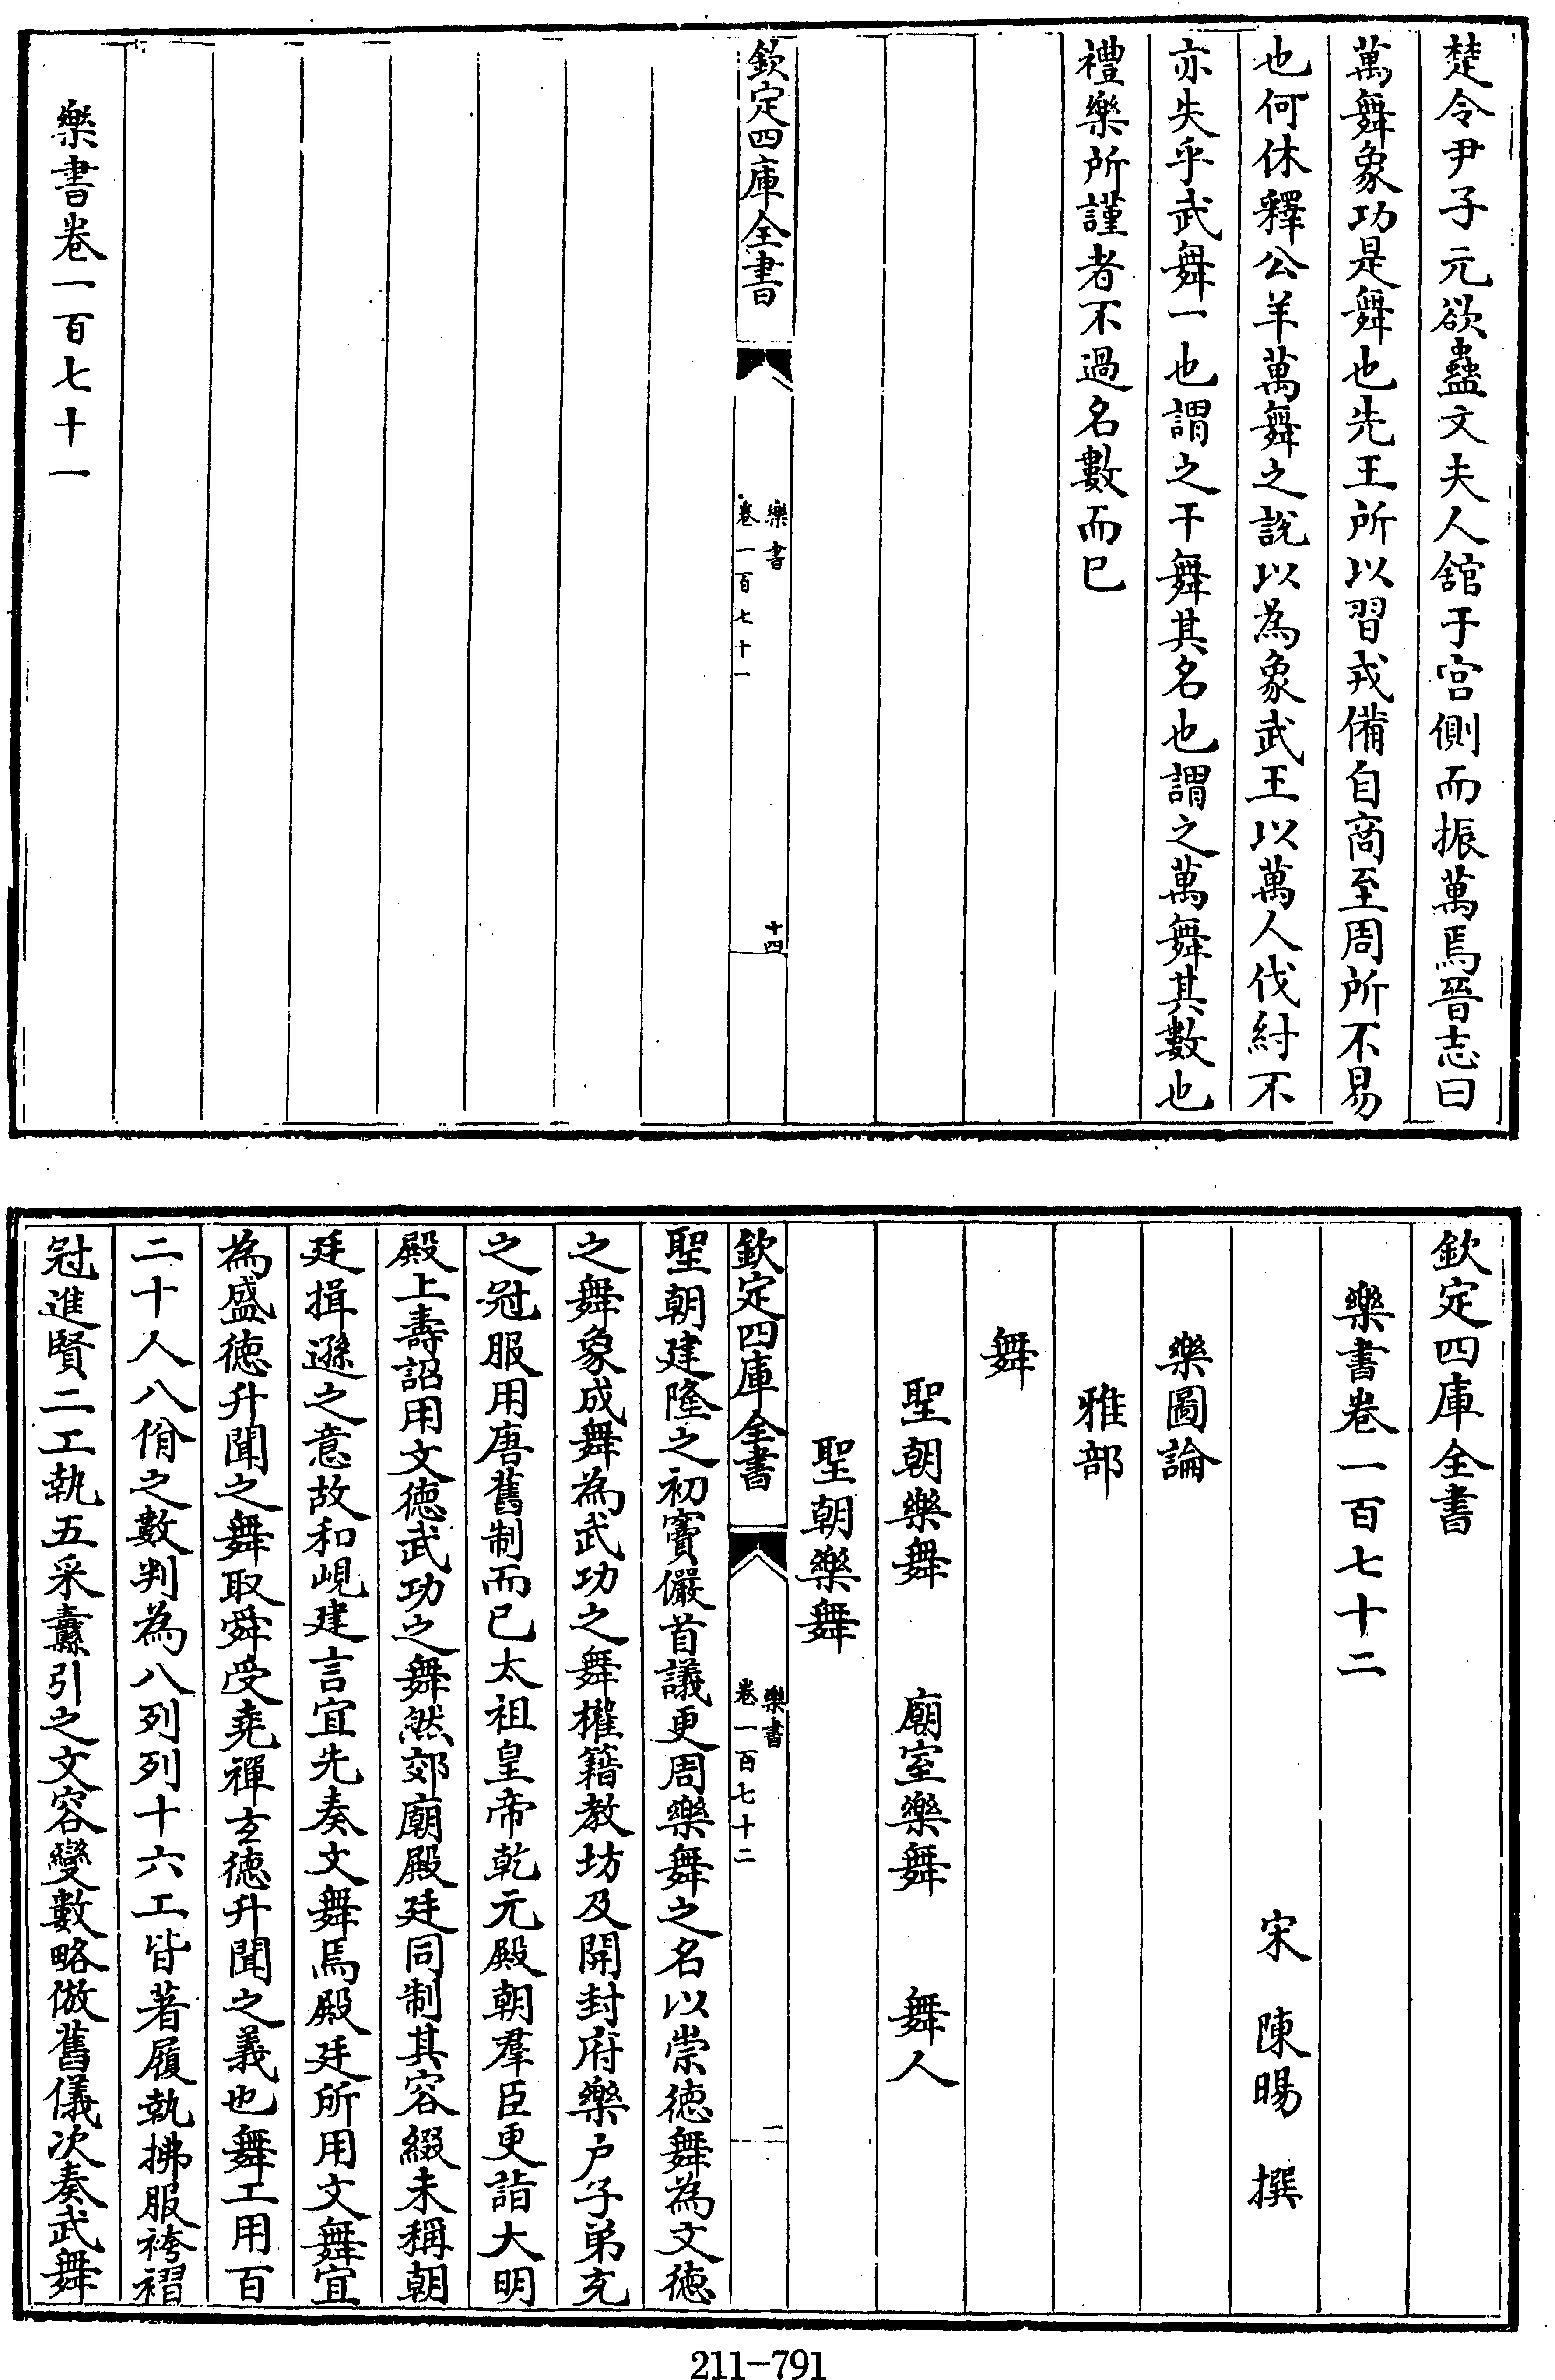 楚令尹子元欲蠱文夫人舘于宫側而振萬焉晉志曰
萬舞象功是舞也先王所以習戎備自商至周所不易
也何休釋公羊萬舞之説以為象武王以萬人伐紂不
亦失乎武舞一也謂之干舞其名也謂之萬舞其數也
禮樂所謹者不過名數而已
欽定四庫全書
樂書
卷一百七十一
十四
樂書卷一百七十一
欽定四庫全書
樂書卷一百七十二
宋 陳暘 撰
樂圖論
雅部
舞
聖朝樂舞 廟室樂舞 舞人
聖朝樂舞
欽定四庫全書
樂書
卷一百七十二
一
聖朝建隆之初竇儼首議更周樂舞之名以崇徳舞為文徳
之舞象成舞為武功之舞權籍教坊及開封府樂户子弟充
之冠服用唐舊制而已太祖皇帝乾元殿朝羣臣更詣大明
殿上壽詔用文徳武功之舞然郊廟殿廷同制其容綴未稱朝
廷揖遜之意故和峴建言宜先奏文舞焉殿廷所用文舞宜
為盛徳升聞之舞取舜受堯禪玄徳升聞之義也舞工用百
二十人八佾之數判為八列列十六工皆著履執拂服袴褶
冠進賢二工執五采纛引之文容變數略倣舊儀次奏武舞
211-791